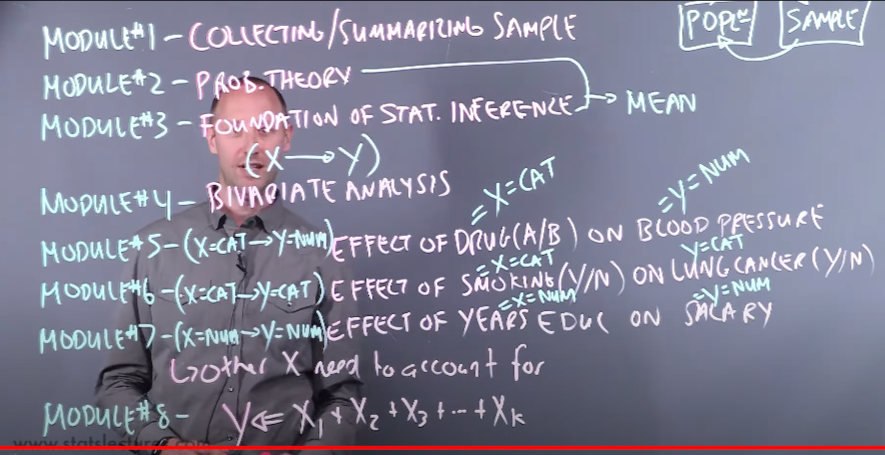 POPLN SAMPLE
MODULE#1 - COLLECTING/SUMMARIZING SAMPLE
MODULE#2 - PROB. THEORY
MODULE#3 - FOUNDATION OF STAT. INFERENCE → MEAN
(X → Y)
MODULE#4 - BIVARIATE ANALYSIS
=X=CAT =Y=NUM
MODULE#5 - (X=CAT→Y=NUM) EFFECT OF DRUG(A/B) ON BLOOD PRESSURE
=X=CAT Y=CAT
MODULE#6 - (X=CAT→Y=CAT) EFFECT OF SMOKING(Y/N) ON LUNG CANCER(Y/N)
=X=NUM =Y=NUM
MODULE#7 - (X=NUM→Y=NUM) EFFECT OF YEARS EDUC ON SALARY
↳other X need to account for
MODULE#8 - Y⇐X₁+X₂+X₃+--+Xₖ
www.statslectures.com